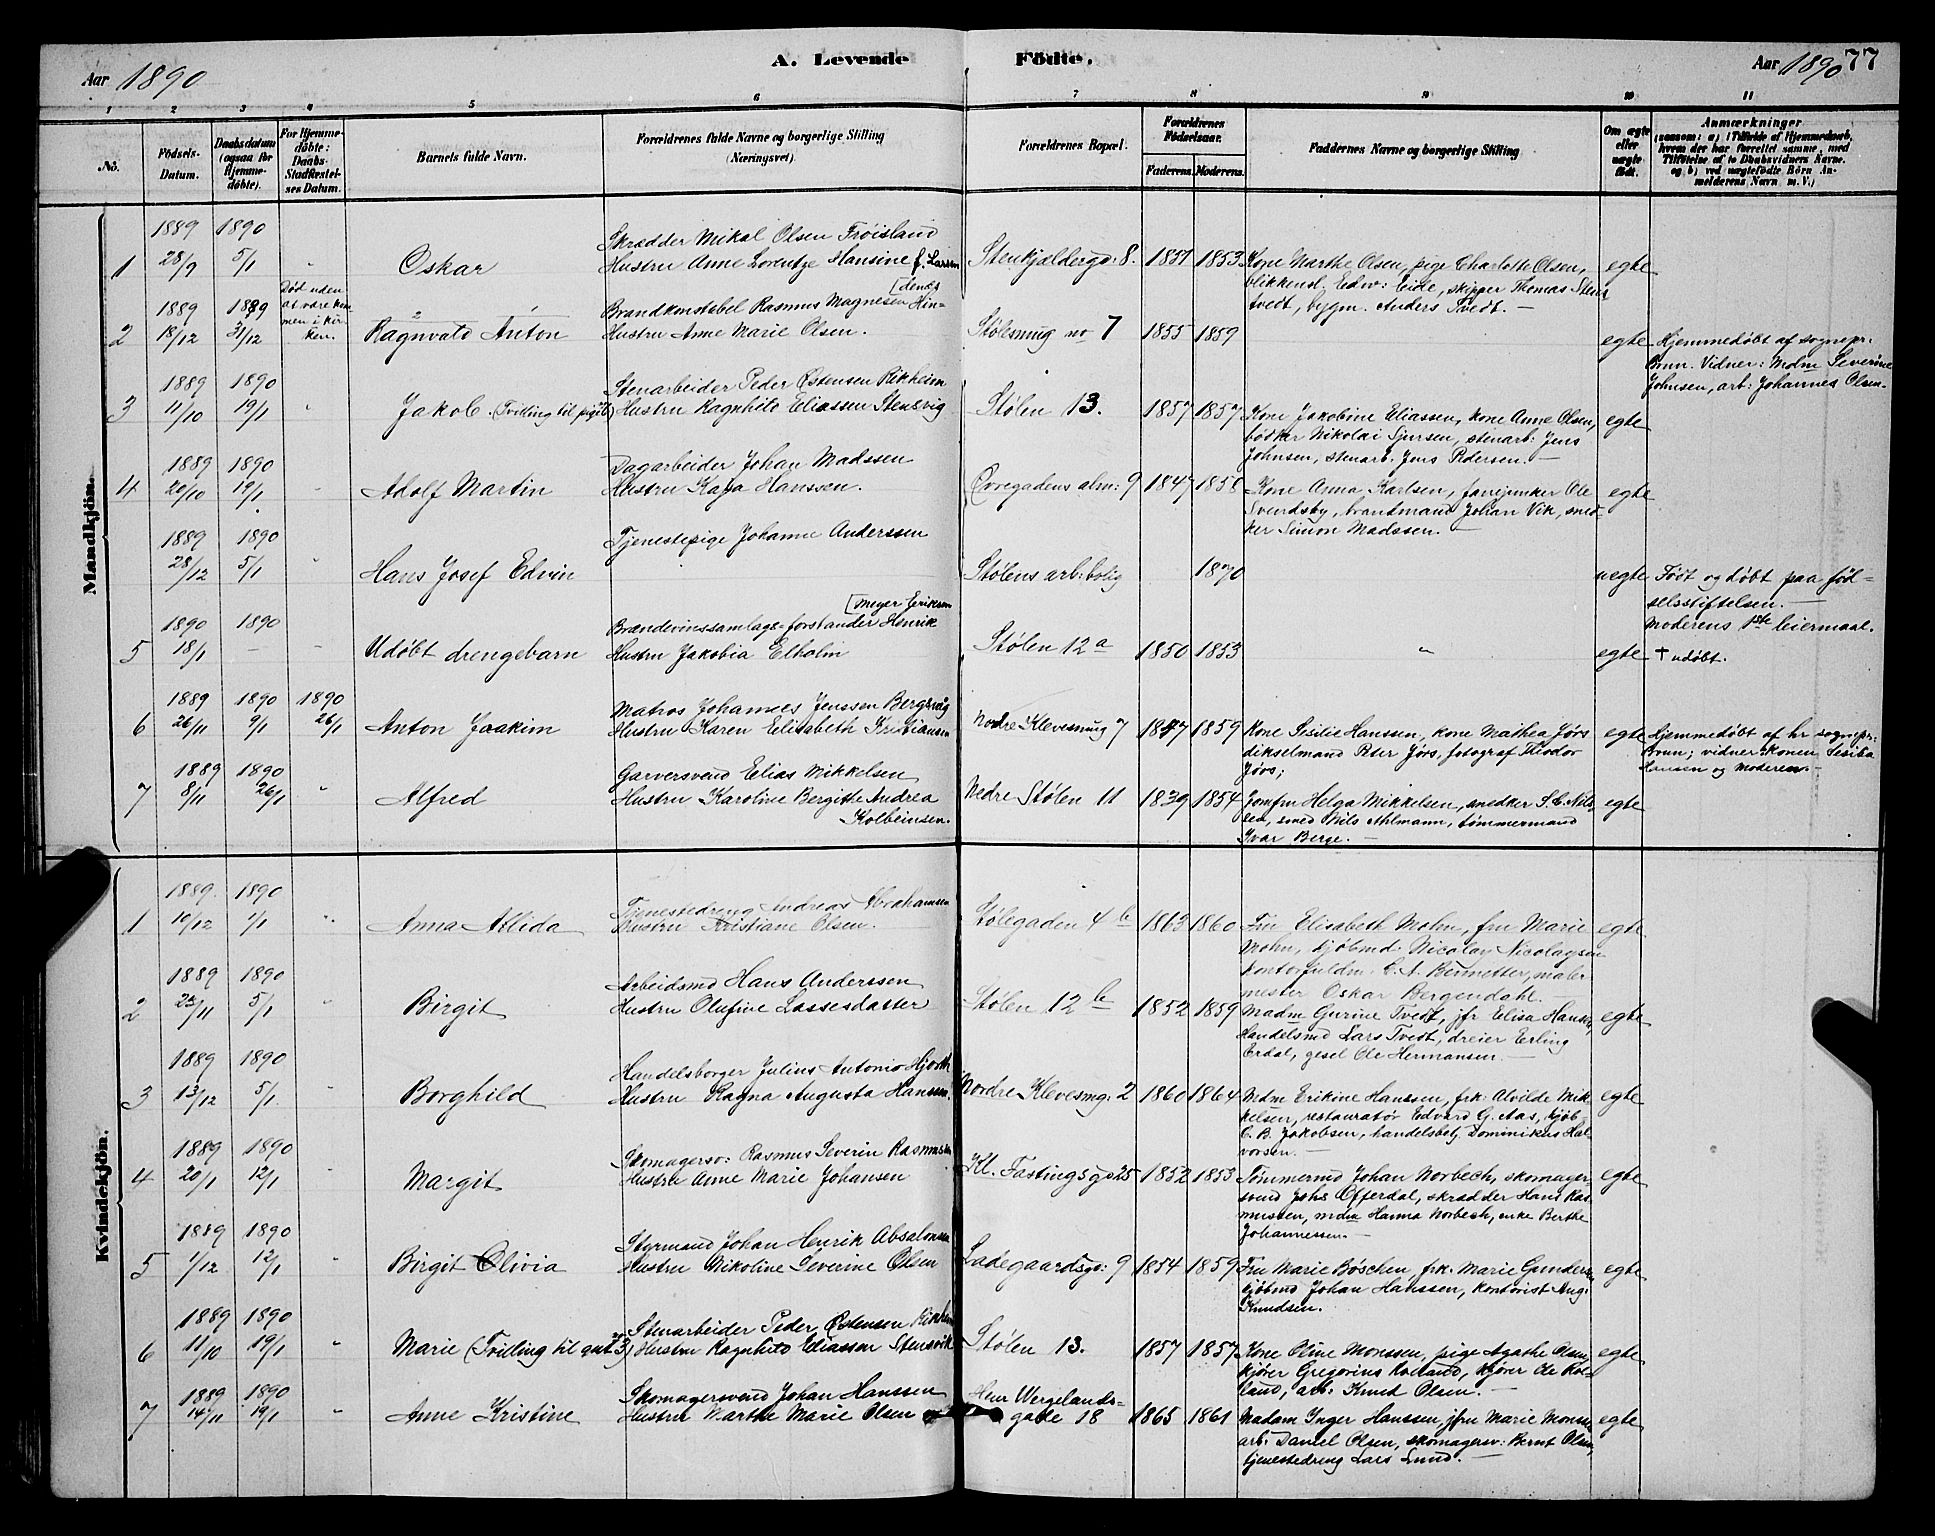 Aar 1890
A. Levende Födte.
Aar 1890 77
1 2 3 4 5 6 7 8 9 10 11
No.
Födsels-Datum.
Daabsdatum (ogsaa for Hjemmedöbte).
For Hjemmedöbte: Daabs-Stadfæstelses Datum.
Barnets fulde Navn.
Forældrenes fulde Navne og borgerlige Stilling (Næringsvei).
Forældrenes Bopæl.
Forældrenes Födselsaar.
Faderens. Moderens.
Faddernes Navne og borgerlige Stilling
Om ægte eller uægte födt.
Anmærkninger
(saasom: a) i Tilfælde af Hjemmedaab, hvem der har forrettet samme, med Tilföielse af to Daabsvidners Navne, og b) ved uægtefödte Börn Anmelderens Navn m. V.)
Mandkjön.
1889 1890
Skrædder Mikal Olsen Frøisland
1 28/9 5/1 " Oskar Hustru Anne Lorentze Hansine f. Larsen Stenkjeldergd: 8. 1851 1853 Kone Marthe Olsen, pige Charlotte Olsen, egte
blikkensl. Edv: Eide, skipper Thomas Stens
tvedt, bygm. Anders Tvedt. —
1889 1889 Død uden at være kommen i kirken.
Brandkonstabel Rasmus Magnesen Hin=
[denes
2 18/12 31/12 Ragnvald Anton Hustru Anne Marie Olsen. Stølesmug no 7 1855 1859 egte Hjemmedøbt af sognepr:
Brun. Vidner: Madm Severine
Johnsen, arb: Johannes Olsen.
1889 1890
Stenarbeider Peder Østensen Rikheim
3 11/10 19/1 " Jakob. (Tvilling til pige 6) Hustru Ragnhild Eliassen Stensvig Stølen 13. 1857 1857 Kone Jakobine Eliassen, kone Anne Olsen, egte
bødker Nikolai Sjursen, stenarb: Jens
Johnsen, stenarb. Jens Pedersen. —
1889 1890
Dagarbeider Johan Madssen
4 20/10 19/1 Adolf Martin Hustru Kaja Hanssen. Øvregadens alm: 9 1847 1858 Kone Anna Karlsen, fanejunker Ole egte
Svendsby, brandmand Johan Vik, sned=
ker Simon Madssen. —
1889 1890
Tjenestepige Johanne Anderssen
28/12 5/1 " Hans Josef Edvin Stølens arb: bolig 1870 uegte Født og døbt paa fød=
selsstiftelsen. —
Moderens 1ste leiermaal.
1890 1890
[Meyer Eriksen
Brændevinssamlags=forstander Henrik
5 18/1 — " Udøbt drengebarn Hustru Jakobia Elholm Stølen 12 a 1850 1853 " egte † udøbt.
1889 1890 1890
Matros Johannes Jenssen Bergsvig
6 26/11 9/1 26/1 Anton Joakim Hustru Karen Elisabeth Kristiansen Nordre Klevesmug 7 1847 1859 Kone Sisilie Hanssen, kone Mathea Jørs egte Hjemmedøbt af hr sognepr:
dikselmand Peter Jørs, fotograf Theodor Brun; vidner konen Sesilia
Jørs; Hansen og Moderen. —
1889 1890
Garversvend Elias Mikkelsen
7 8/11 26/1 " Alfred Hustru Karoline Bergithe Andrea Nedre Stølen 11 1839 1854 Jomfru Helga Mikkelsen, snedker S. C. Nils= egte
Kolbeinsen. sen, smed Nils Ahlmann, tømmermand
Ivar Berge. —
Kvindekjön.
1889. 1890
Tjenestedreng Andreas Abrahamsen
1 10/12 1/1 " Anna Allida Hustru Kristiane Olsen. Stølegaden 4 b 1863 1860 Fru Elisabeth Mohn, fru Marie egte
Mohn, kjøbmd. Nicolay Nicolaysen
kontorfuldm. C. A. Bernetter, maler
mester Oskar Bergendahl. —
1889 1890
Arbeidsmd Hans Anderssen
2 23/11 5/1 " Birgit Hustru Olufine Lassesdatter Stølen 12 b 1852 1859 Madm Gurine Tvedt, jfr Elisa Hansen, egte
Handelsmd Lars Tvedt, dreier Erling
Erdal, gesel Ole Hermansen. —
1889 1890
Handelsborger Julius Antonio Hjorth
3 13/12 5/1 " Borghild Hustru Ragna Augusta Hanssen Nordre Klevesmg: 2 1860 1864 Mdm Erikine Hanssen, frk: Alvilde Mik= egte
kelsen, restauratør Edvard G. Aas, kjøb=
C. B. Jakobsen, handelsbg Dominikus Hal
vorsen. —
1889 1890
Skomagersv: Rasmus Severin Rasmussen
4 20/1 12/1 " Margit Hustru Anne Marie Johansen Kl. Fastingsgd 25 1852 1853 Tømmermd Johan Norbech, skomager= egte
svend Johs Offerdal, skrædder Hans Ras
mussen, mdm Hanna Norbech, enke Berthe
Johannessen. —
1889 1890
Styrmand Johan Henrik Absalonsen
5 1/12 12/1 " Birgit Olivia Hustru Nikoline Severine Olsen Ladegaardsgd: 9 1854 1859 Fru Marie Bøschen, frk. Marie Gunders egte
kjøbmd Johan Hanssen, kontorist Aug:
Knudsen.
1889 1890
Stenarbeider Peder Østensen Rikheim
6 11/10 19/1 " Marie (Tvilling til gut no 3) Hustru Ragnhild Eliassen Stensvik Stølen 13. 1857 1857 Kone Oline Monssen, pige Agathe Olsen, egte
kjører Gregorius Rolland, kjører Ole Rol=
land, arb. Knud Olsen. —
1889 1890
Skomagersvend Johan Hanssen
7 14/11 19/1 " Anne Kristine Hustru Marthe Marie Olsen Henr Wergelands=
gade 18 1865 1861 Madam Inger Hanssen, jfru Marie Monssen egte
arb: Daniel Olsen, skomagersv: Bernt Olsen,
tjenestedreng Lars Lund. —